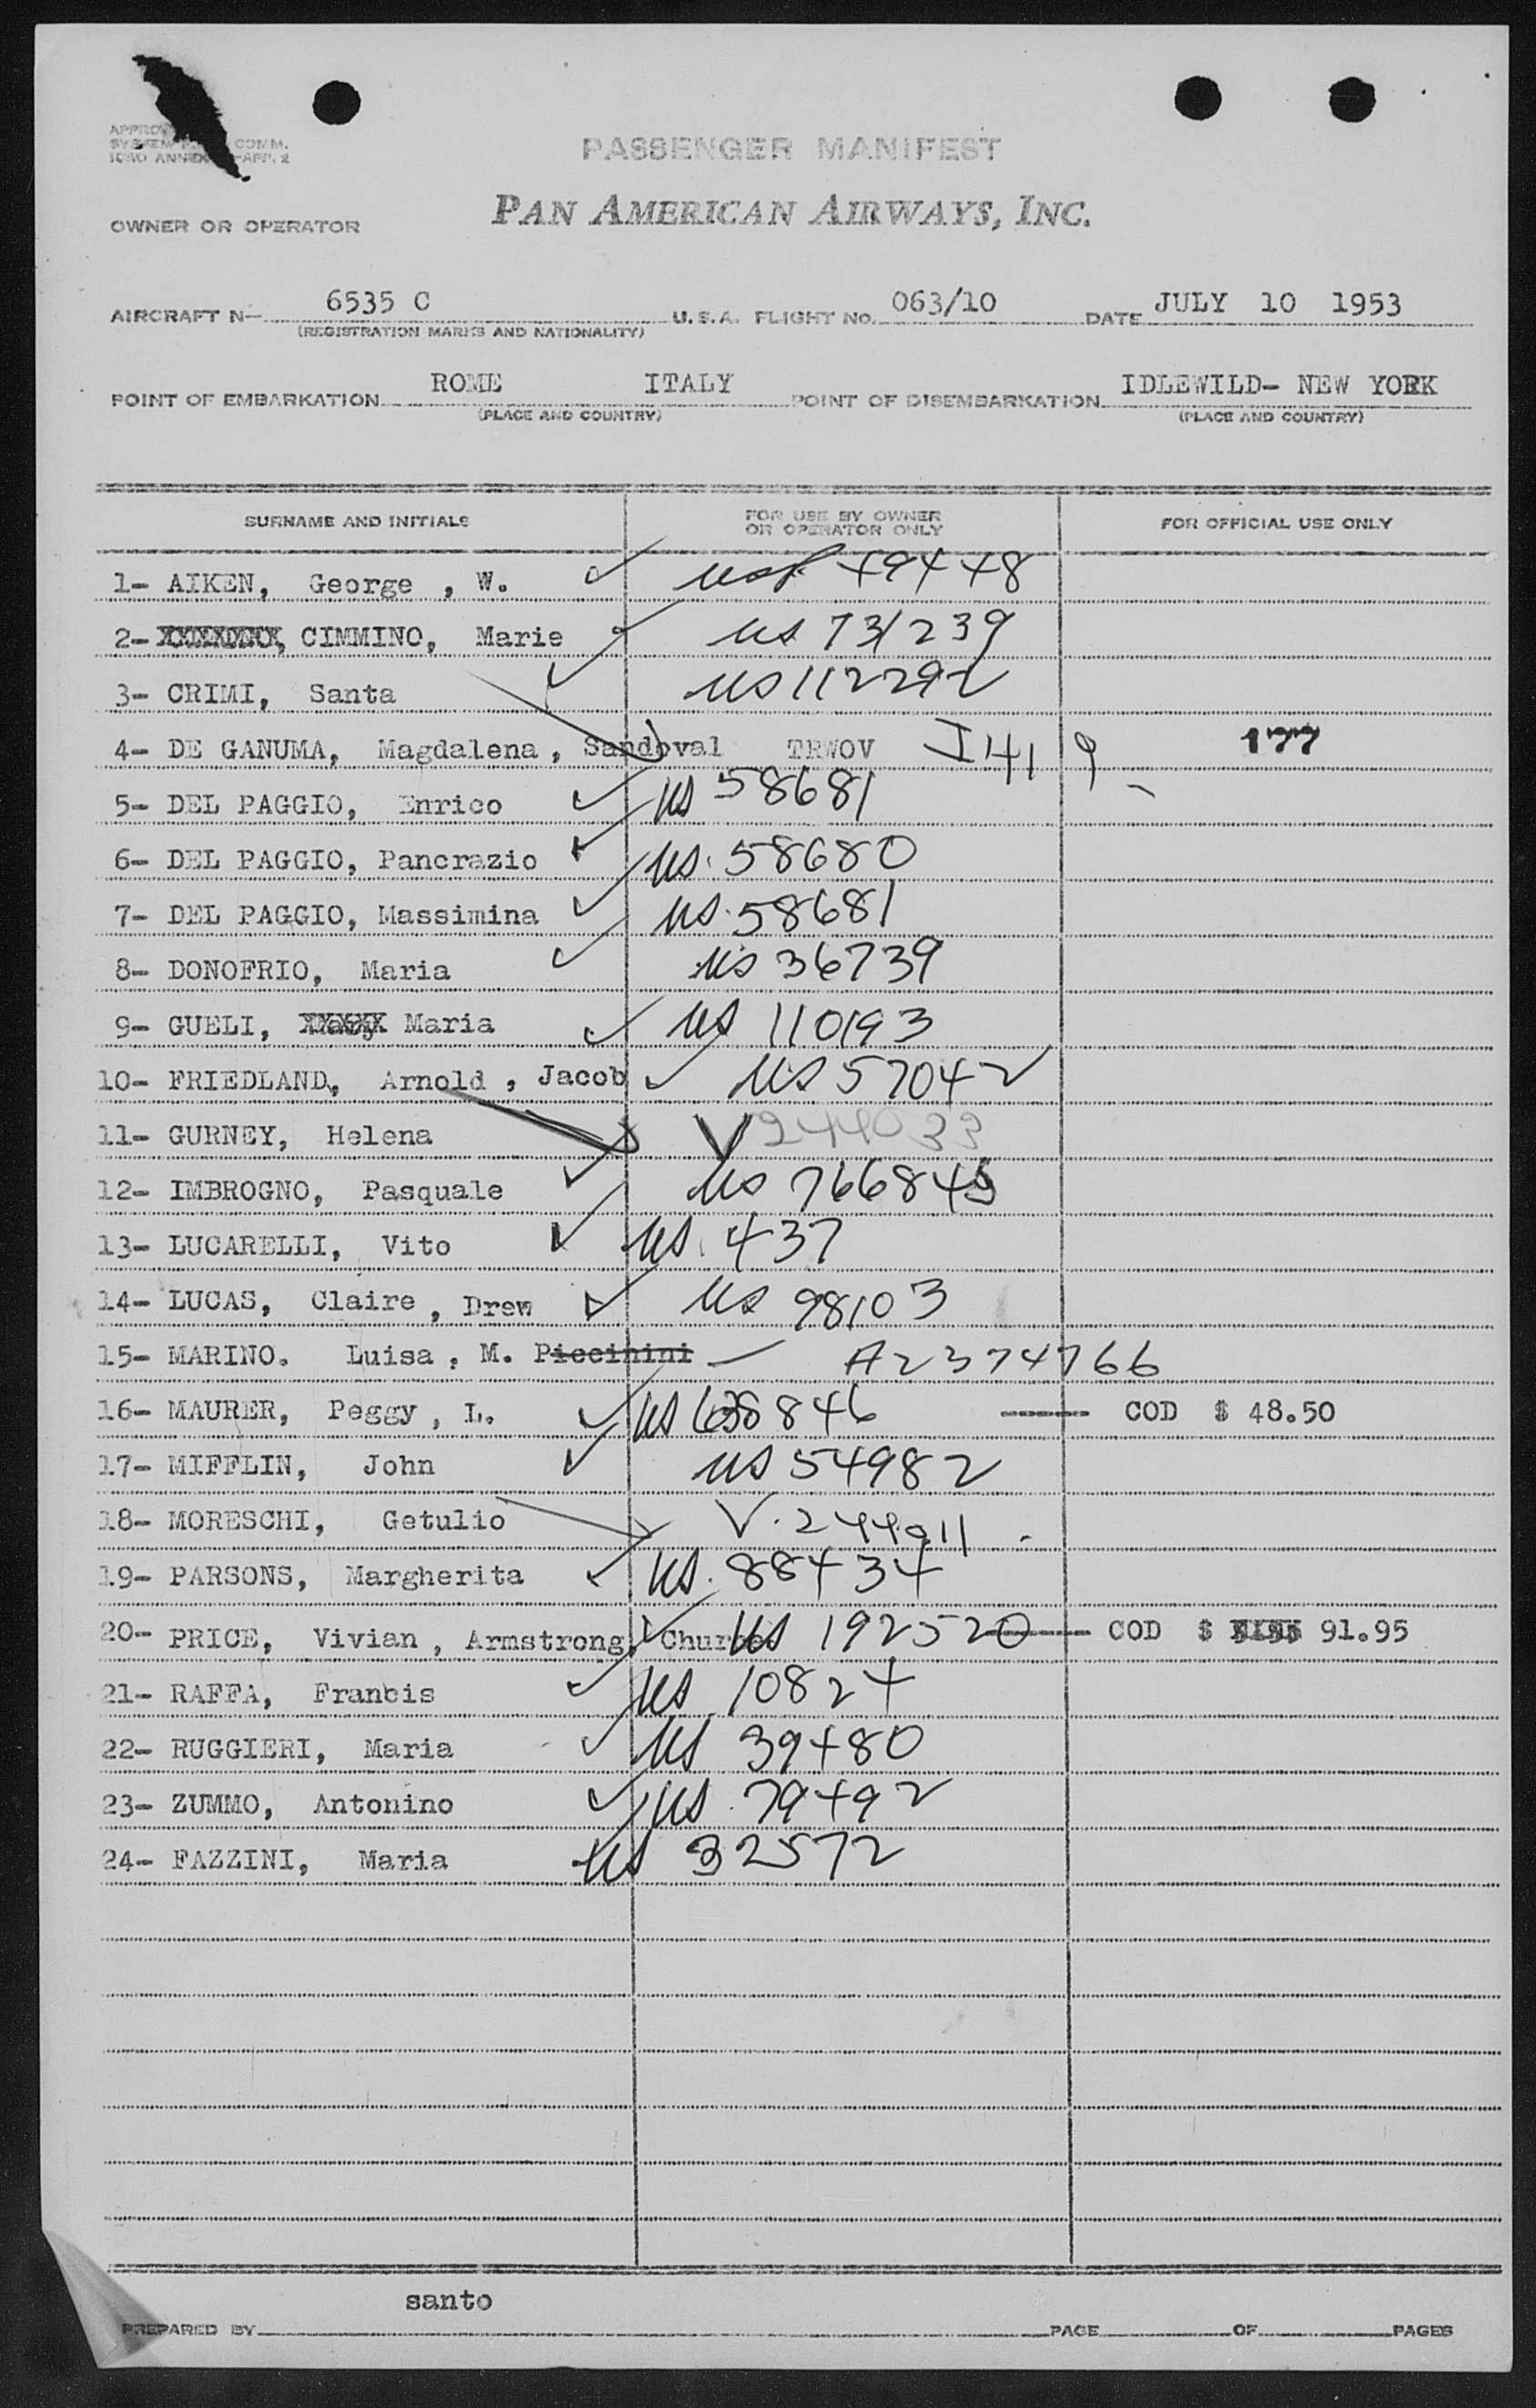 PASSENGER MANIFEST
OWNER OR OPERATOR PAN AMERICAN AIRWAYS, INC.
AIRCRAFT N— 6535 C U.S.A. FLIGHT NO. 063/10 DATE JULY 10 1953
(REGISTRATION MARKS AND NATIONALITY)
POINT OF EMBARKATION ROME ITALY POINT OF DISEMBARKATION IDLEWILD- NEW YORK
(PLACE AND COUNTRY) (PLACE AND COUNTRY)
SURNAME AND INITIALS FOR USE BY OWNER OR OPERATOR ONLY FOR OFFICIAL USE ONLY
1- AIKEN, George , W. 49448
2- CIMMINO, Marie US 731239
3- CRIMI, Santa US 112292
4- DE GANUMA, Magdalena, Sandoval TRWOV I 419 177
5- DEL PAGGIO, Enrico US 58681
6- DEL PAGGIO, Pancrazio US. 58680
7- DEL PAGGIO, Massimina US. 58681
8- DONOFRIO, Maria US 36739
9- GUELI, Maria US 110193
10- FRIEDLAND, Arnold , Jacob US 57042
11- GURNEY, Helena V 244033
12- IMBROGNO, Pasquale US
13- LUCARELLI, Vito US. 437
14- LUCAS, Claire , Drew US 98103
15- MARINO. Luisa , M. Piccinini — A2374766
16- MAURER, Peggy , L. US 638846 ------ COD $ 48.50
17- MIFFLIN, John US 54982
18- MORESCHI, Getulio V. 244011
19- PARSONS, Margherita US. 88434
20- PRICE, Vivian , Armstrong, US 192520 ------ COD $ 91.95
21- RAFFA, Francis US 10824
22- RUGGIERI, Maria US 39480
23- ZUMMO, Antonino US. 79492
24- FAZZINI, Maria US 32572
santo
PREPARED BY PAGE OF PAGES